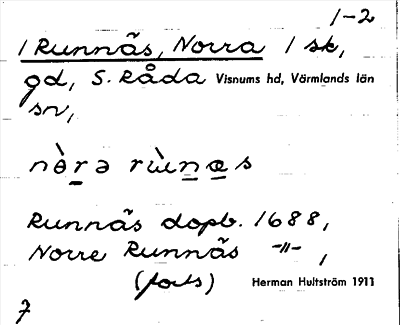 1-2
1 Runnäs, Norra 1 sk,
gd, S. Råda Visnums hd, Värmlands län
sn,
nɵ̀rə rùnæs
Runnäs dopb. 1688,
Norre Runnäs -"- ,
(forts) Herman Hultström 1911
7